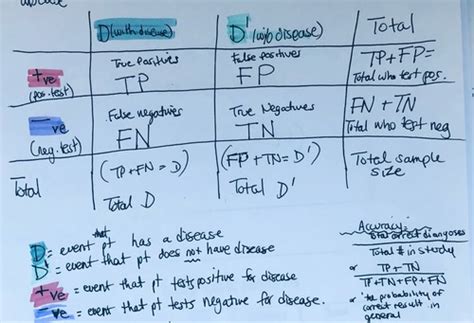 D (with disease)
D' (w/o disease)
Total
+ve
(pos. test)
True Positives
TP
False positives
FP
TP + FP =
Total who test pos.
-ve
(neg. test)
False negatives
FN
True Negatives
TN
FN + TN
Total who test neg
Total
(TP + FN = D)
Total D
(FP + TN = D')
Total D'
Total sample
size
D = event that pt has a disease
D' = event that pt does not have disease
+ve = event that pt tests positive for disease
-ve = event that pt tests negative for disease.
Accuracy:
Total correct diangoses
Total # in study
or TP + TN
TP+TN+FP+FN
or the probability of
correct result in
general